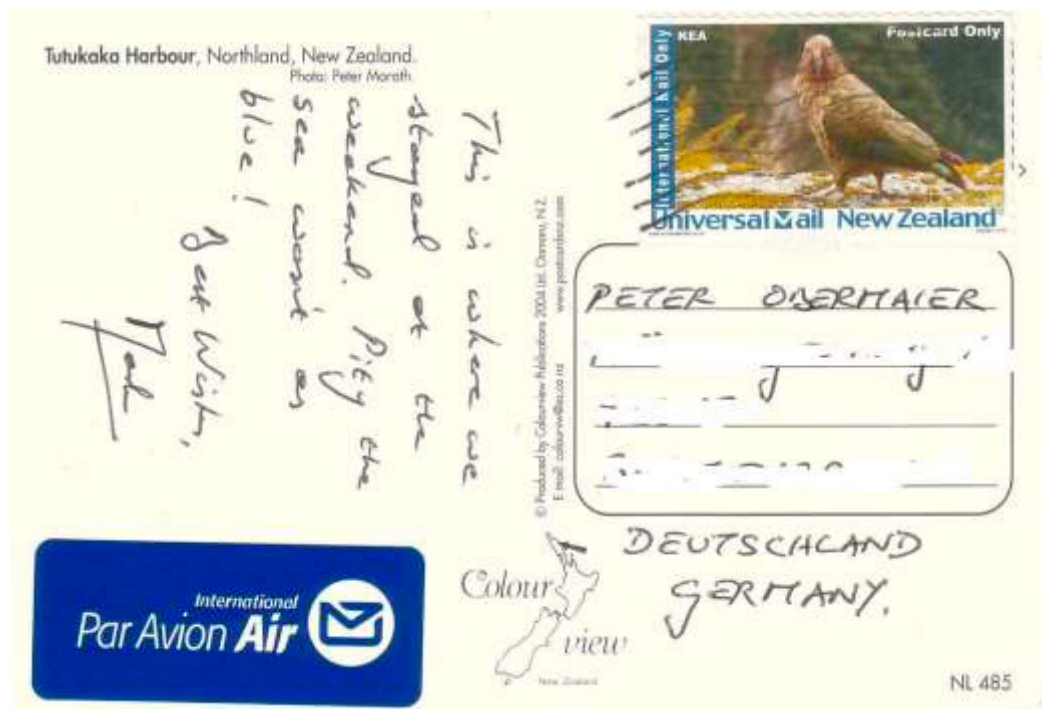 Tutukaka Harbour, Northland, New Zealand.
Photo: Peter Morath
This is where we
stayed at the
weekend. Pity the
sea wasn't as
blue!
Best Wishes,
Mark
© Produced by Colourview Publications 2004 Ltd. Oamaru, N.Z.
E mail: colourvw@es.co.nz www.postcardnz.com
KEA
Postcard Only
International Mail Only
Universal Mail New Zealand
PETER OBERMAIER
DEUTSCHLAND
GERMANY.
International
Par Avion Air
Colour
view
New Zealand
NL 485